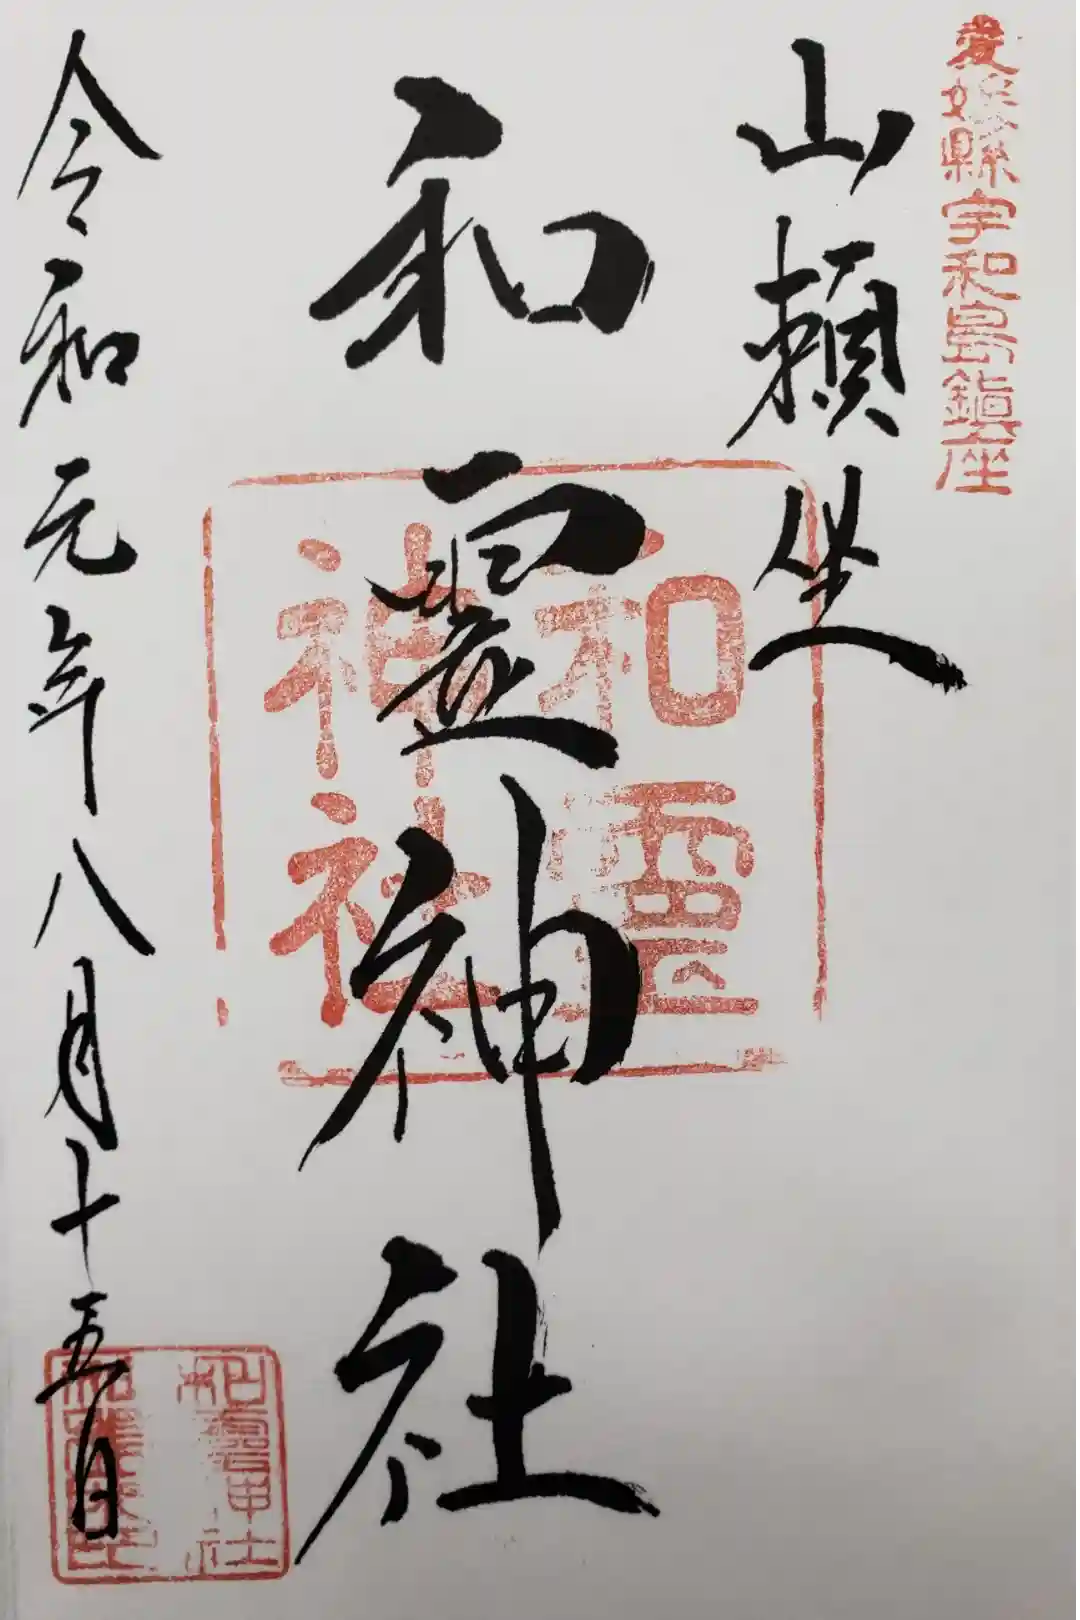 愛媛縣宇和島鎮座
山頼坐
和霊神社
和霊
神社
令和元年八月十五日